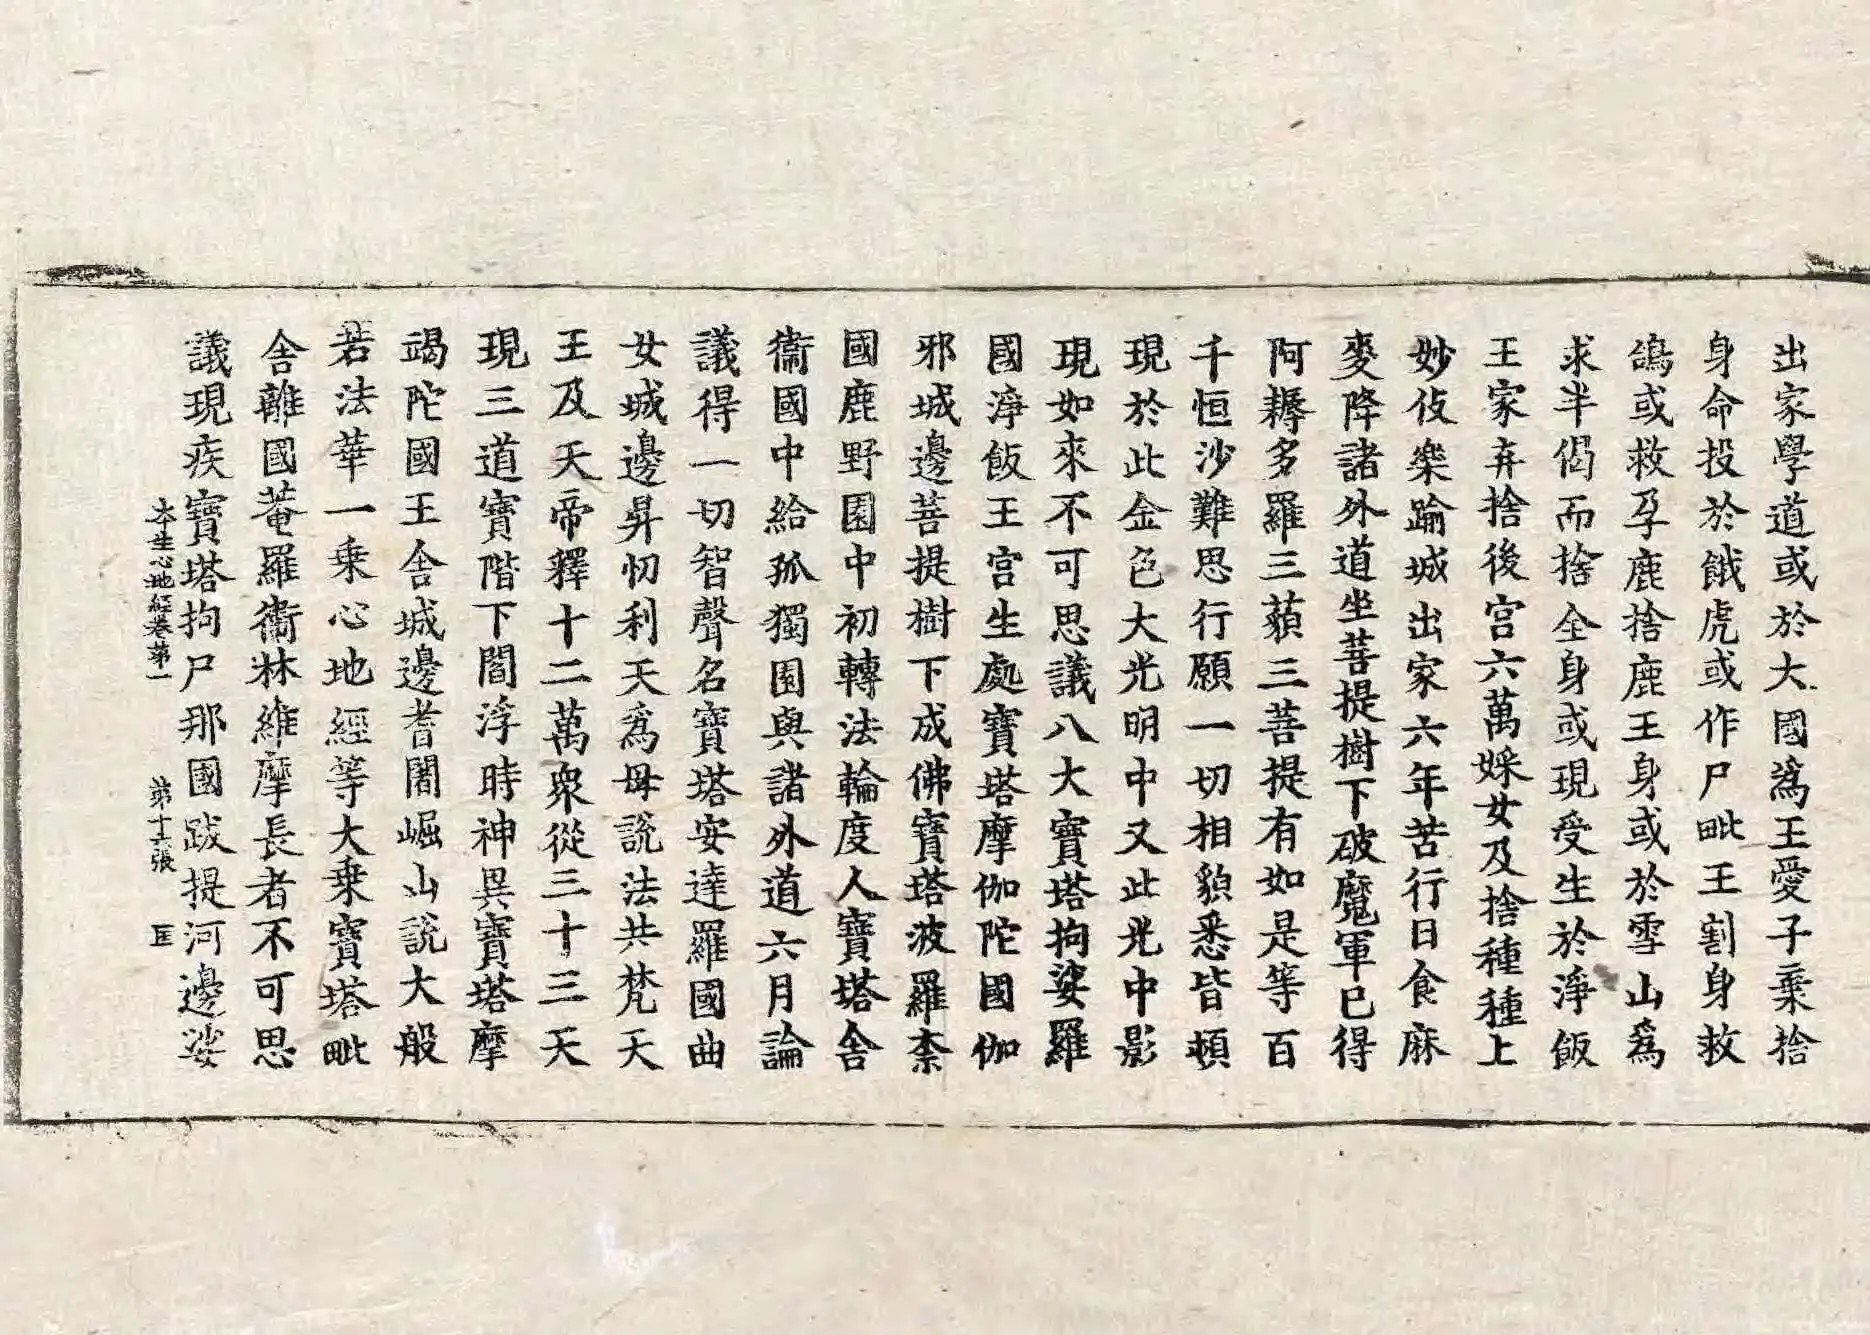 出家學道或於大國為王愛子棄捨
身命投於餓虎或作尸毗王割身救
鴿或救孕鹿捨鹿王身或於雪山為
求半偈而捨全身或現受生於淨飯
王家弃捨後宮六萬婇女及捨種種上
妙伎樂踰城出家六年苦行日食麻
麥降諸外道坐菩提樹下破魔軍已得
阿耨多羅三藐三菩提有如是等百
千恒沙難思行願一切相貌悉皆頓
現於此金色大光明中又此光中影
現如來不可思議八大寶塔拘娑羅
國淨飯王宮生處寶塔摩伽陀國伽
邪城邊菩提樹下成佛寶塔波羅柰
國鹿野園中初轉法輪度人寶塔舍
衞國中給孤獨園與諸外道六月論
議得一切智聲名寶塔安達羅國曲
女城邊昇忉利天為母說法共梵天
王及天帝釋十二萬眾從三十三天
現三道寶階下閻浮時神異寶塔摩
竭陀國王舍城邊耆闍崛山說大般
若法華一乘心地經等大乘寶塔毗
舍離國菴羅衞林維摩長者不可思
議現疾寶塔拘尸那國跋提河邊娑
本生心地經卷第一 第十張 匡